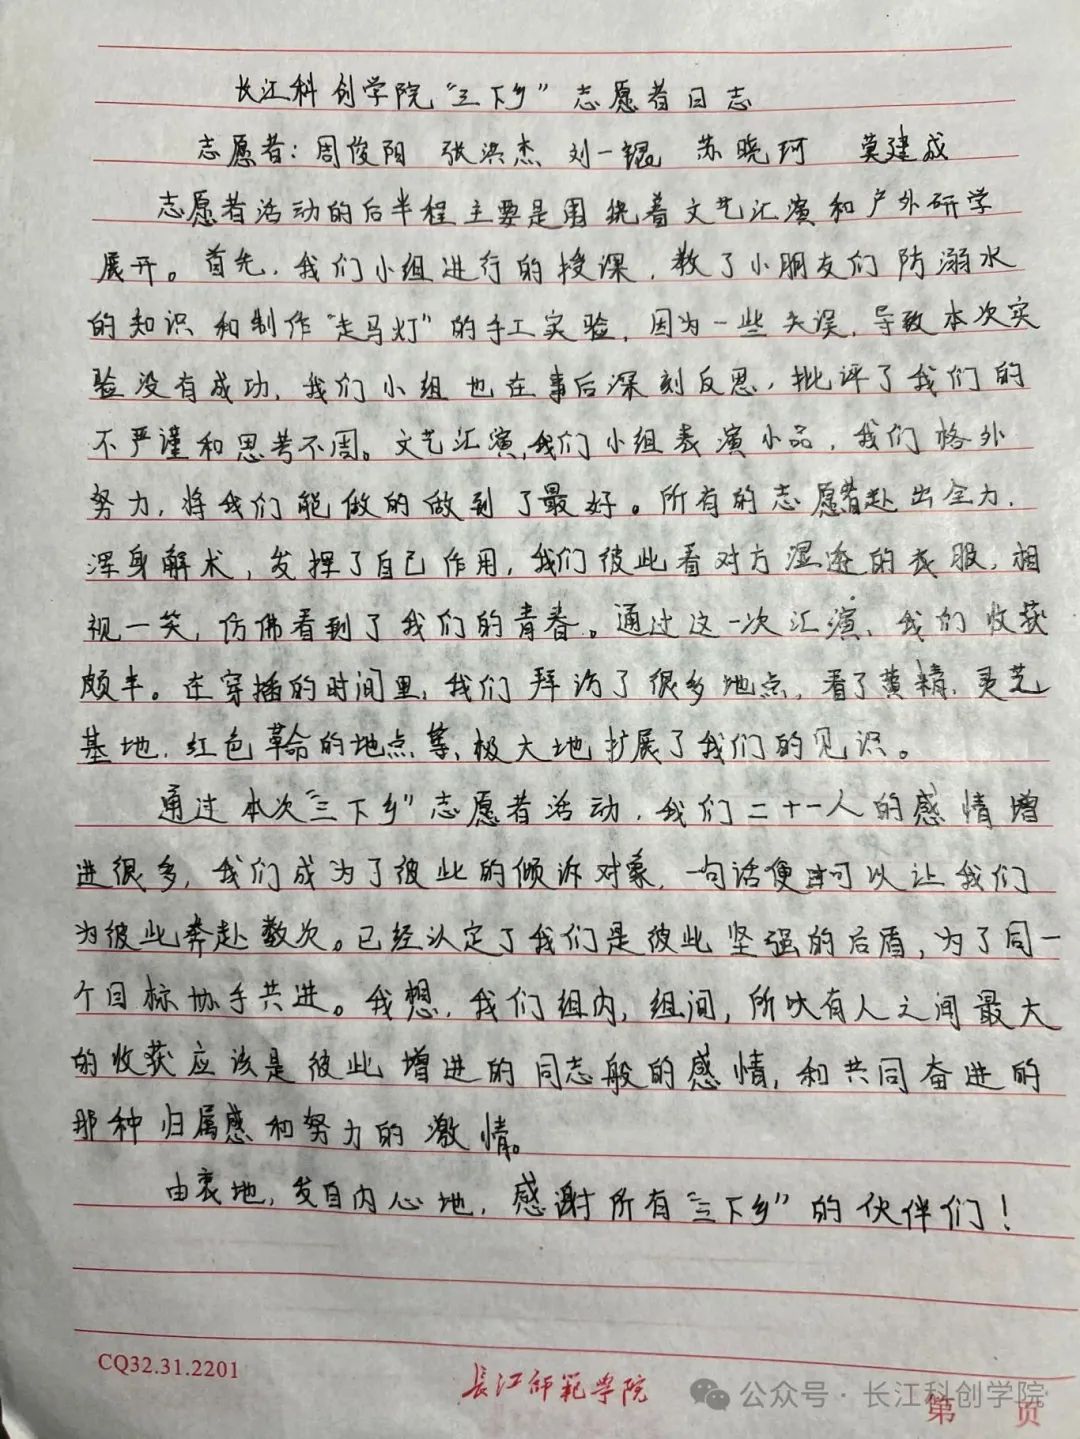 长江科创学院“三下乡”志愿者日志
志愿者：周俊阳 张洪杰 刘一锟 苏晓珂 莫建成
志愿者活动的后半程主要是围绕着文艺汇演和户外研学
展开。首先，我们小组进行的授课，教了小朋友们防溺水
的知识和制作“走马灯”的手工实验，因为一些失误，导致本次实
验没有成功，我们小组也在事后深刻反思，批评了我们的
不严谨和思考不周。文艺汇演，我们小组表演小品，我们格外
努力，将我们能做的做到了最好。所有的志愿者赴出全力，
浑身解术，发挥了自己作用，我们彼此看对方湿透的衣服，相
视一笑，仿佛看到了我们的青春。通过这一次汇演，我们收获
颇丰。在穿插的时间里，我们拜访了很多地点，看了黄精、灵芝
基地、红色革命的地点等，极大地扩展了我们的见识。
通过本次“三下乡”志愿者活动，我们二十一人的感情增
进很多，我们成为了彼此的倾诉对象，一句话便可以让我们
为彼此奔赴数次。已经认定了我们是彼此坚强的后盾，为了同一
个目标协手共进。我想，我们组内，组间，所有人之间最大
的收获应该是彼此增进的同志般的感情，和共同奋进的
那种归属感和努力的激情。
由衷地，发自内心地，感谢所有“三下乡”的伙伴们！
CQ32.31.2201
长江师范学院
公众号·长江科创学院
第 页